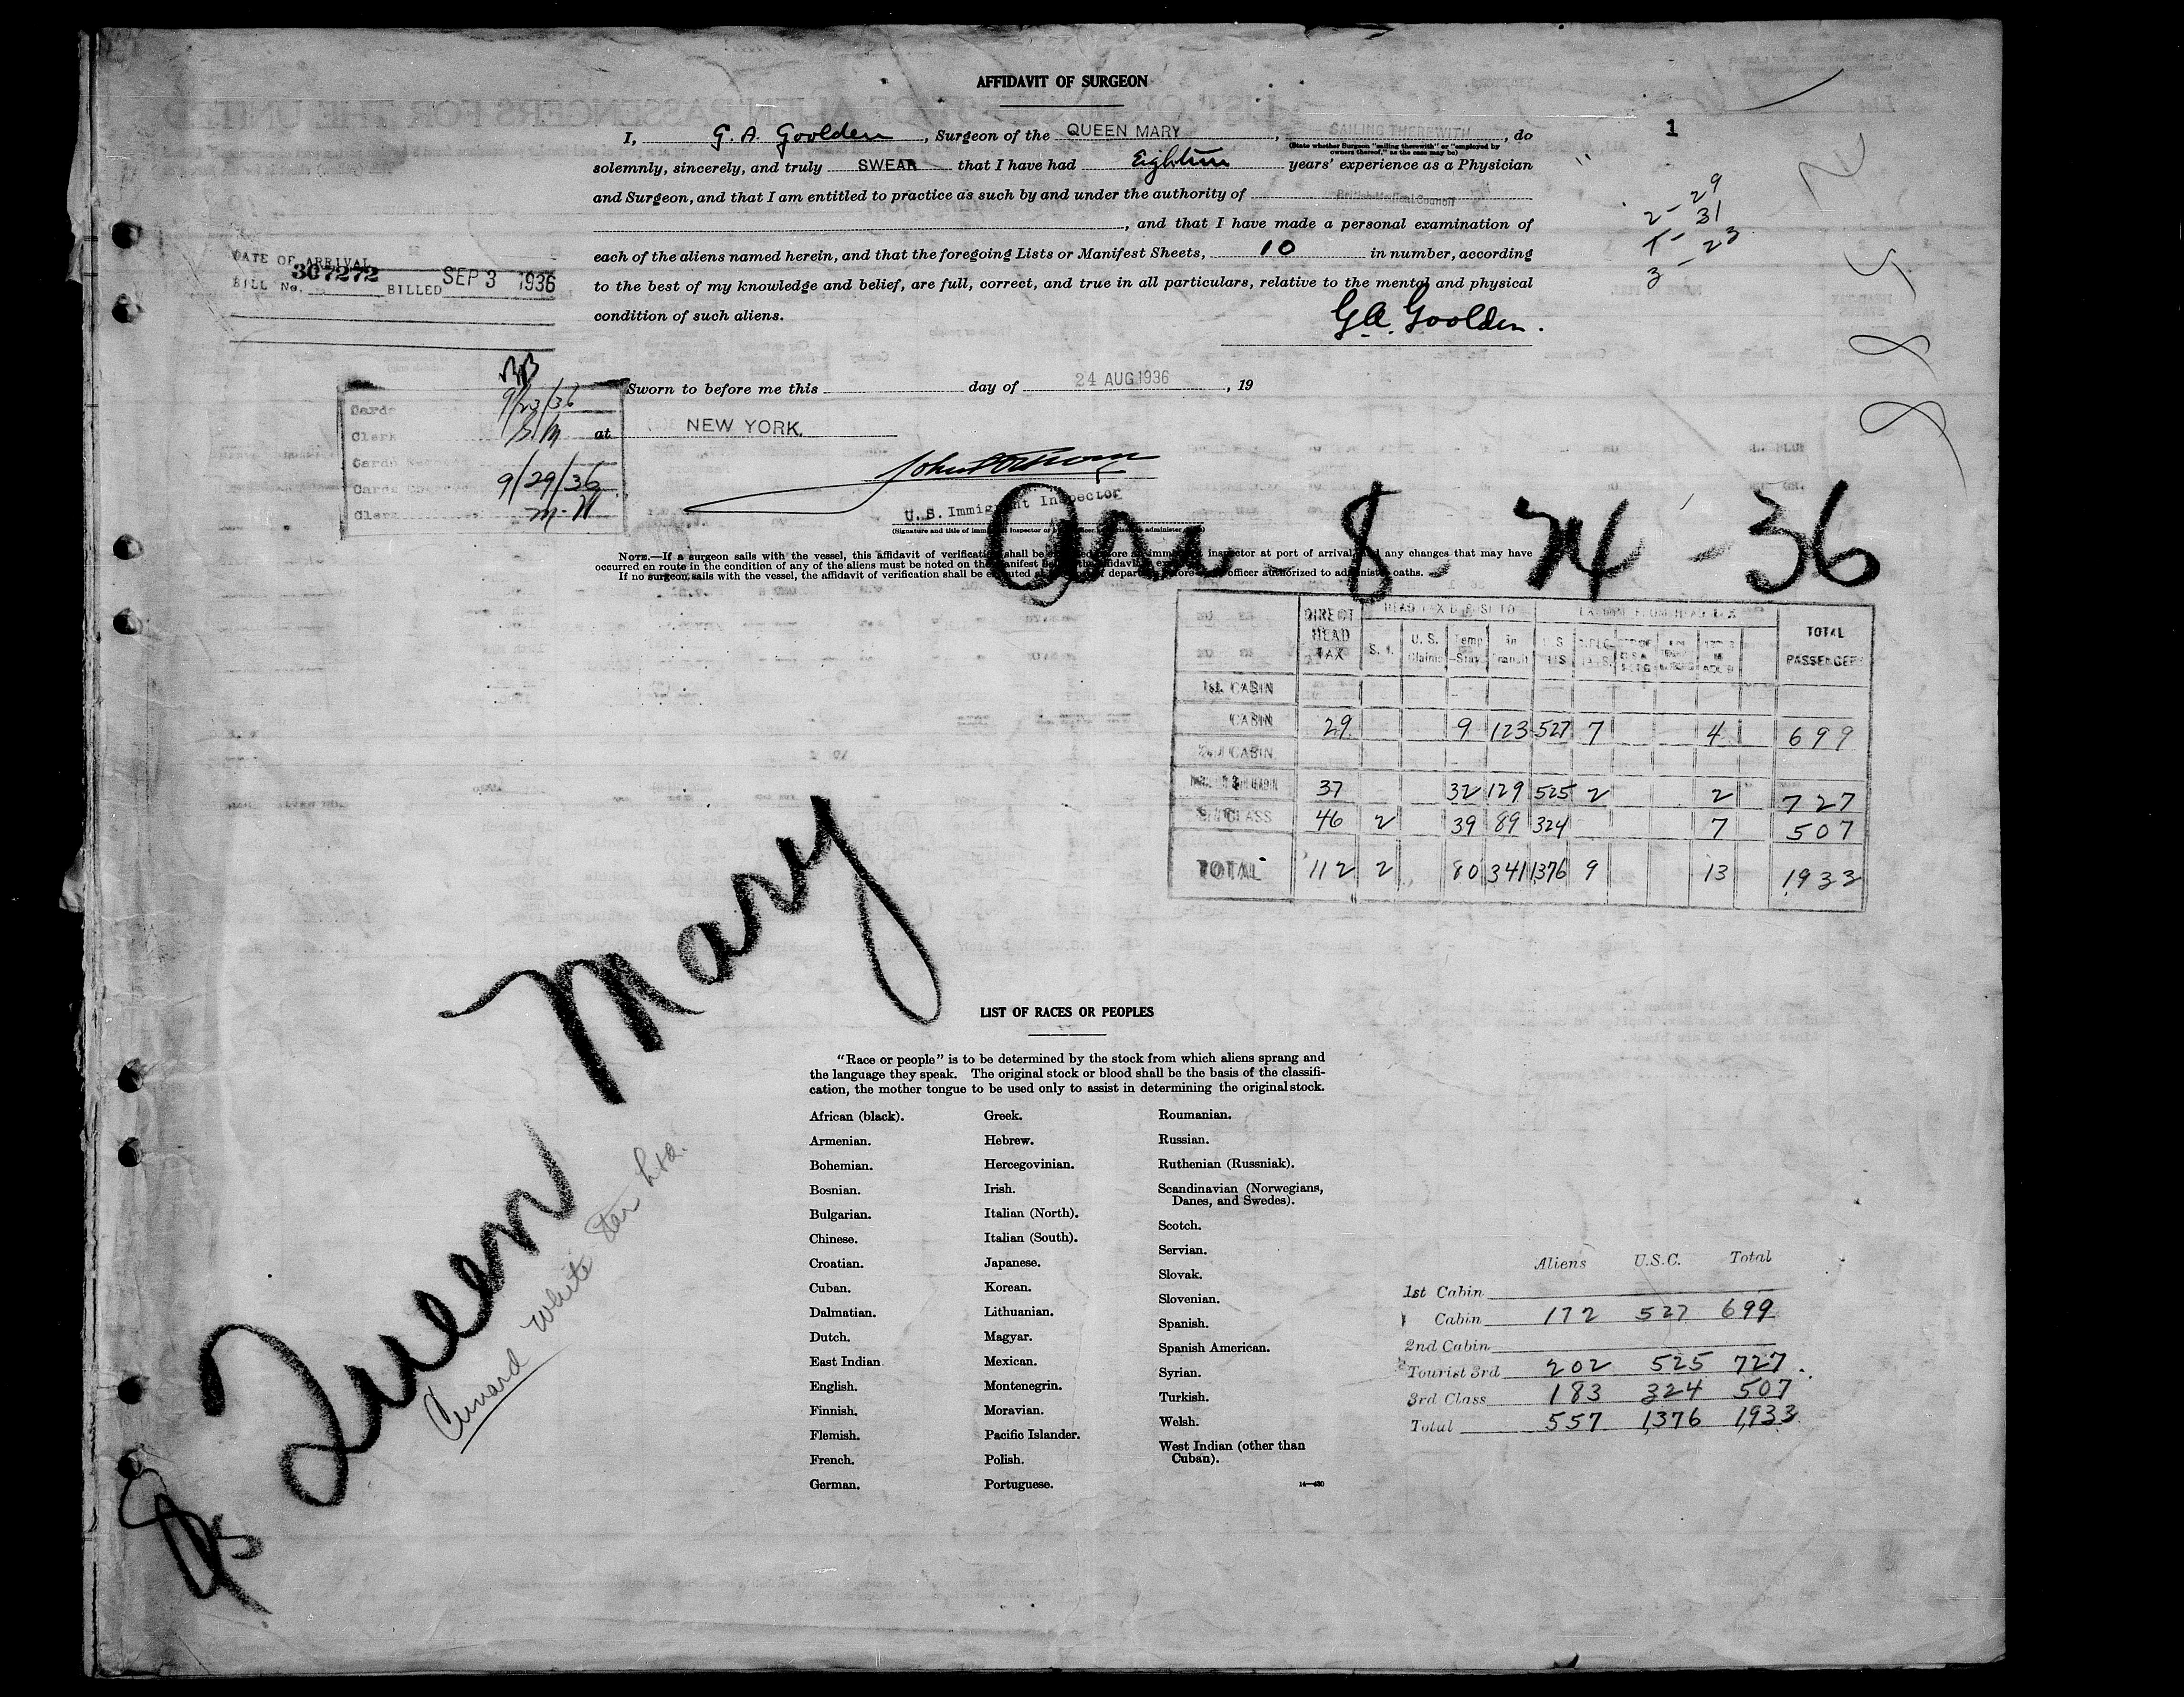 AFFIDAVIT OF SURGEON
I, G. A. Goolden, Surgeon of the QUEEN MARY, SAILING THEREWITH, do
(State whether Surgeon "sailing therewith" or "employed by owners thereof," as the case may be)
solemnly, sincerely, and truly SWEAR that I have had Eighteen years' experience as a Physician
and Surgeon, and that I am entitled to practice as such by and under the authority of British Medical Council
, and that I have made a personal examination of
each of the aliens named herein, and that the foregoing Lists or Manifest Sheets, 10 in number, according
to the best of my knowledge and belief, are full, correct, and true in all particulars, relative to the mental and physical
condition of such aliens.
G.A. Goolden.
1
2 - 29
T - 31
3 - 23
DATE OF ARRIVAL
BILL No. 307272 BILLED SEP 3 1936
Cards 9/23/36
Clerk
Cards
Cards Checked 9/29/36
Clerk M-W
Sworn to before me this day of 24 AUG 1936, 19
at NEW YORK.
U.S. Immigrant Inspector
(Signature and title of immigrant inspector or administer
NOTE.—If a surgeon sails with the vessel, this affidavit of verification shall be before inspector at port of arrival any changes that may have
occurred en route in the condition of any of the aliens must be noted on the manifest
If no surgeon sails with the vessel, the affidavit of verification shall be officer authorized to administer oaths.
Arr - 8 - 24 - 36
DIRECT HEAD TAX S. I. U. S. Claims Temp Stay In Transit TOTAL PASSENGERS
1st. CABIN
CABIN 29 9 123 527 7 4 699
2nd CABIN
37 32 129 525 2 2 727
CLASS 46 2 39 89 324 7 507
TOTAL 112 2 80 341 1376 9 13 1933
Queen Mary
Cunard White Star Ltd.
LIST OF RACES OR PEOPLES
"Race or people" is to be determined by the stock from which aliens sprang and
the language they speak. The original stock or blood shall be the basis of the classifi-
cation, the mother tongue to be used only to assist in determining the original stock.
African (black).
Armenian.
Bohemian.
Bosnian.
Bulgarian.
Chinese.
Croatian.
Cuban.
Dalmatian.
Dutch.
East Indian
English.
Finnish.
Flemish.
French.
German.
Greek.
Hebrew.
Hercegovinian.
Irish.
Italian (North).
Italian (South).
Japanese.
Korean.
Lithuanian.
Magyar.
Mexican.
Montenegrin.
Moravian.
Pacific Islander.
Polish.
Portuguese.
Roumanian.
Russian.
Ruthenian (Russniak).
Scandinavian (Norwegians,
Danes, and Swedes).
Scotch.
Servian.
Slovak.
Slovenian.
Spanish.
Spanish American.
Syrian.
Turkish.
Welsh.
West Indian (other than
Cuban).
14—430
Aliens U.S.C. Total
1st Cabin
Cabin 172 527 699
2nd Cabin
Tourist 3rd 202 525 727
3rd Class 183 324 507
Total 557 1,376 1,933